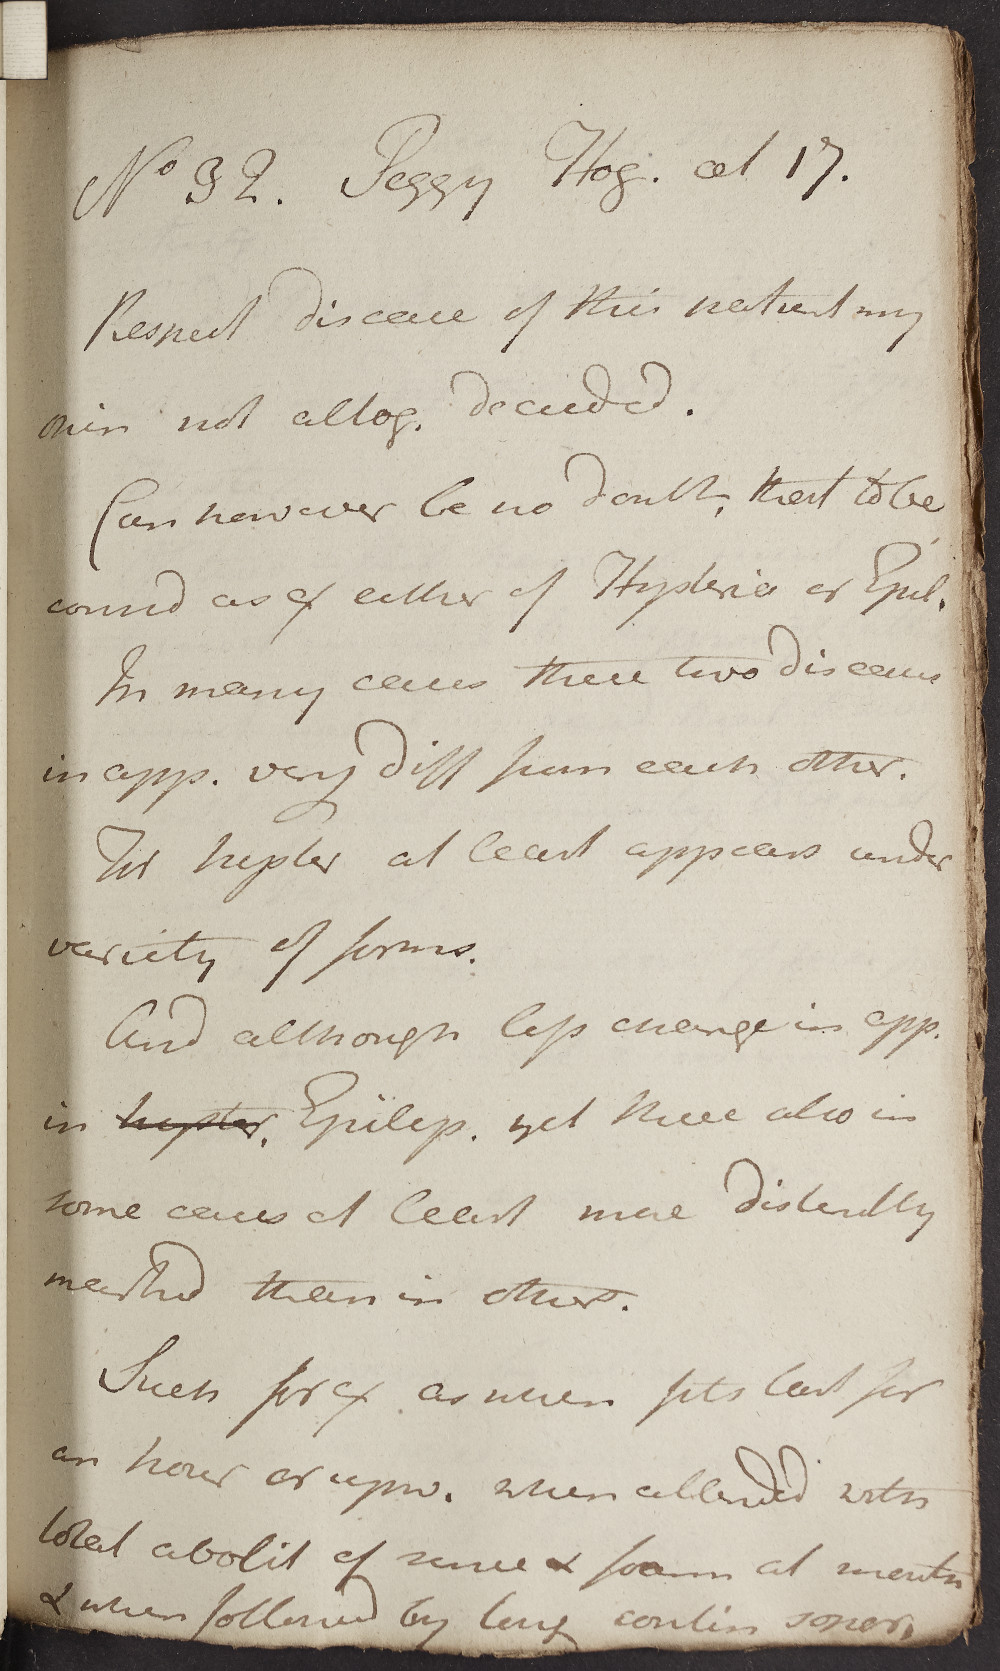 No 32. Peggy Hog. æt 17.
Respect disease of this patient my
opin not altog. decided.
Can however be no doubt, that to be
consid as ex either of Hysteria or Epil.
In many cases these two diseases
in app. very diff from each other.
For hyster at least appears under
variety of forms.
And although less change in app.
in hyster. Epilep. yet these also in
some cases at least more distinctly
marked than in others.
Such for ex as when fits last for
an hour or upw. when attended with
total abolit of sense & foam at mouth
& when followed by long contin sopor.